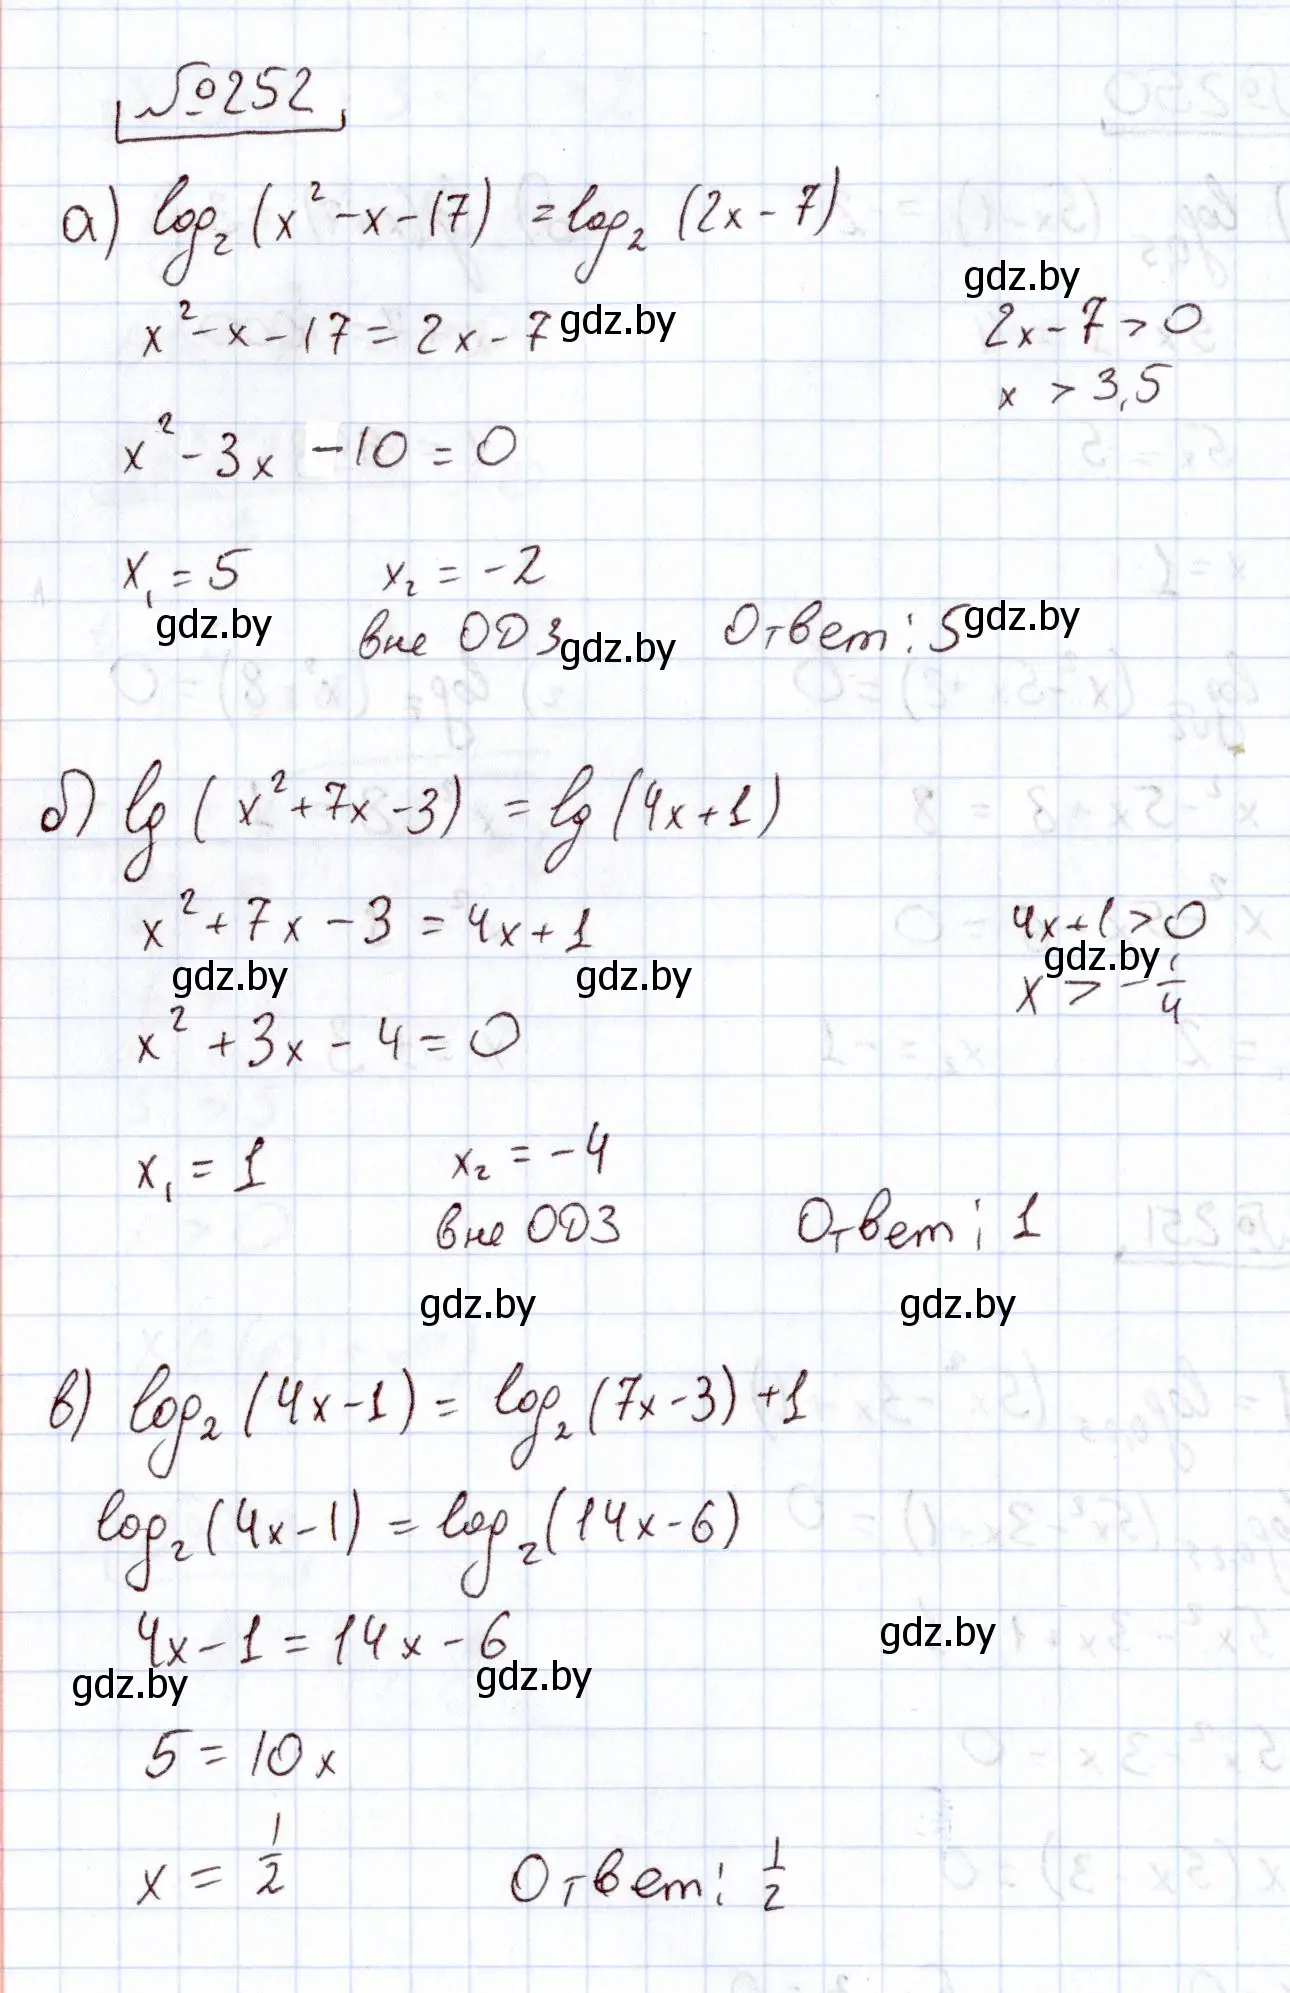 №252
а) log₂(x² - x - 17) = log₂(2x - 7)
gdz.by
x² - x - 17 = 2x - 7 gdz.by 2x - 7 > 0
x > 3,5
x² - 3x - 10 = 0
x₁ = 5 x₂ = -2
gdz.by вне ОДЗ gdz.by Ответ: 5 gdz.by
б) lg(x² + 7x - 3) = lg(4x + 1)
x² + 7x - 3 = 4x + 1 4x + 1 > 0
gdz.by gdz.by gdz.by
x > -1/4
x² + 3x - 4 = 0
x₁ = 1 x₂ = -4
вне ОДЗ Ответ: 1
gdz.by gdz.by
в) log₂(4x - 1) = log₂(7x - 3) + 1
log₂(4x - 1) = log₂(14x - 6)
4x - 1 = 14x - 6 gdz.by
gdz.by gdz.by
5 = 10x
x = 1/2 Ответ: 1/2